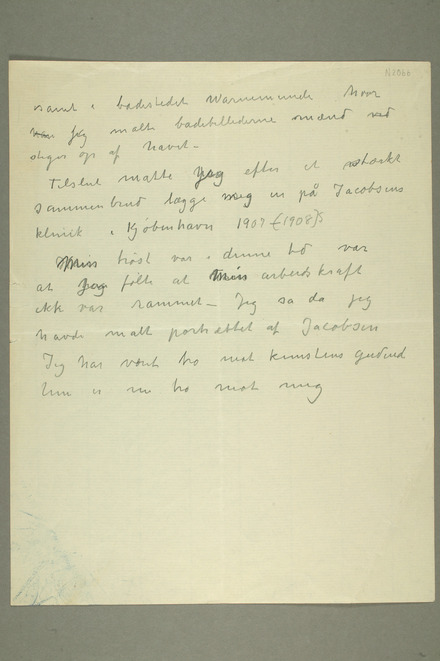 N 1066
samt i badestedet Warnemunde hvor
jeg malte badebillederne mænd ved
stiger op af havet –
Tilslut matte jeg efter et stærkt
sammenbrud lægge meg in på Jacobsens
klinik i Kjøbenhavn 1907 (1908)
Min trøst var i denne tid var
at jeg følte at min arbeidskraft
ikk var rammet – Jeg sa da jeg
havde malt portrættet af Jacobsen
Jeg har vært tro mot kunstens gudind
hun er nu tro mot mig